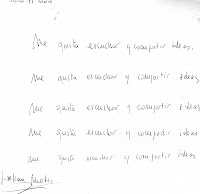 Me gusta escuchar y compartir ideas.
Me gusta escuchar y compartir ideas
Me gusta escuchar y compartir ideas
Me gusta escuchar y compartir ideas
Me gusta escuchar y compartir ideas